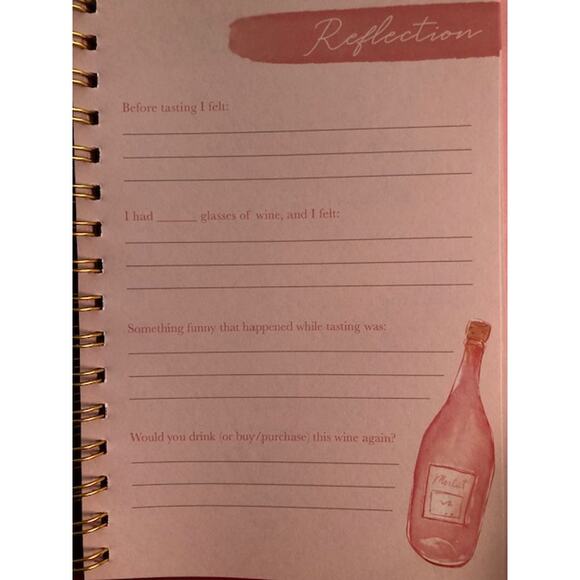 Reflection
Before tasting I felt:
I had ______ glasses of wine, and I felt:
Something funny that happened while tasting was:
Would you drink (or buy/purchase) this wine again?
Merlot